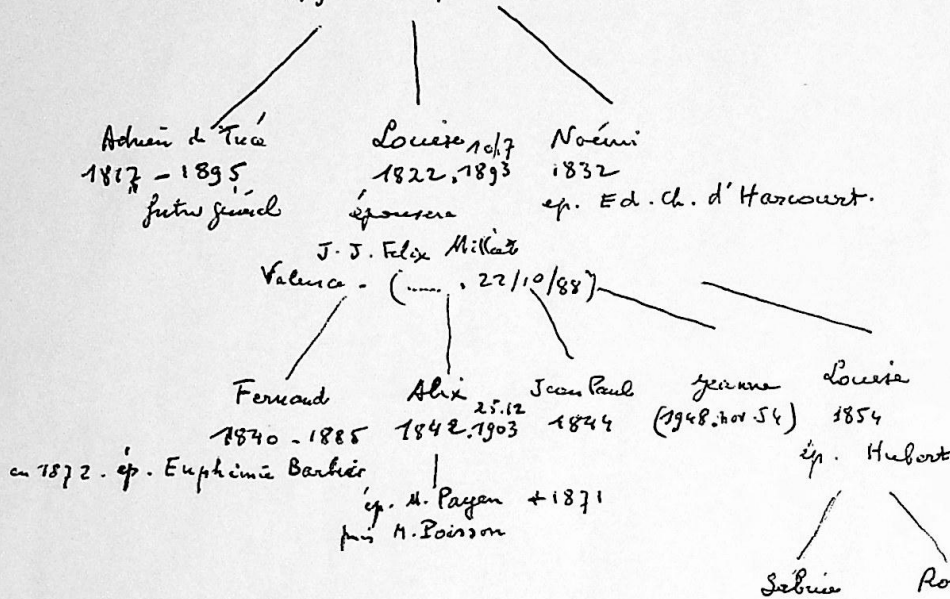 Adrien de Tucé
1817 - 1895
futur général
Louise
1822. 10/7 1893
épousera
J. J. Felix Millet
Valence - (...... . 22/10/88)
Noémi
1832
ep. Ed. Ch. d'Harcourt.
Fernand
1840 - 1885
en 1872. ép. Euphémie Barbier
Alix
1842. 25.12 1903
ép. M. Payen + 1871
puis M. Poisson
Jean Paul
1844
Jeanne
(1948. nov. 54)
Louise
1854
ép. Hubert